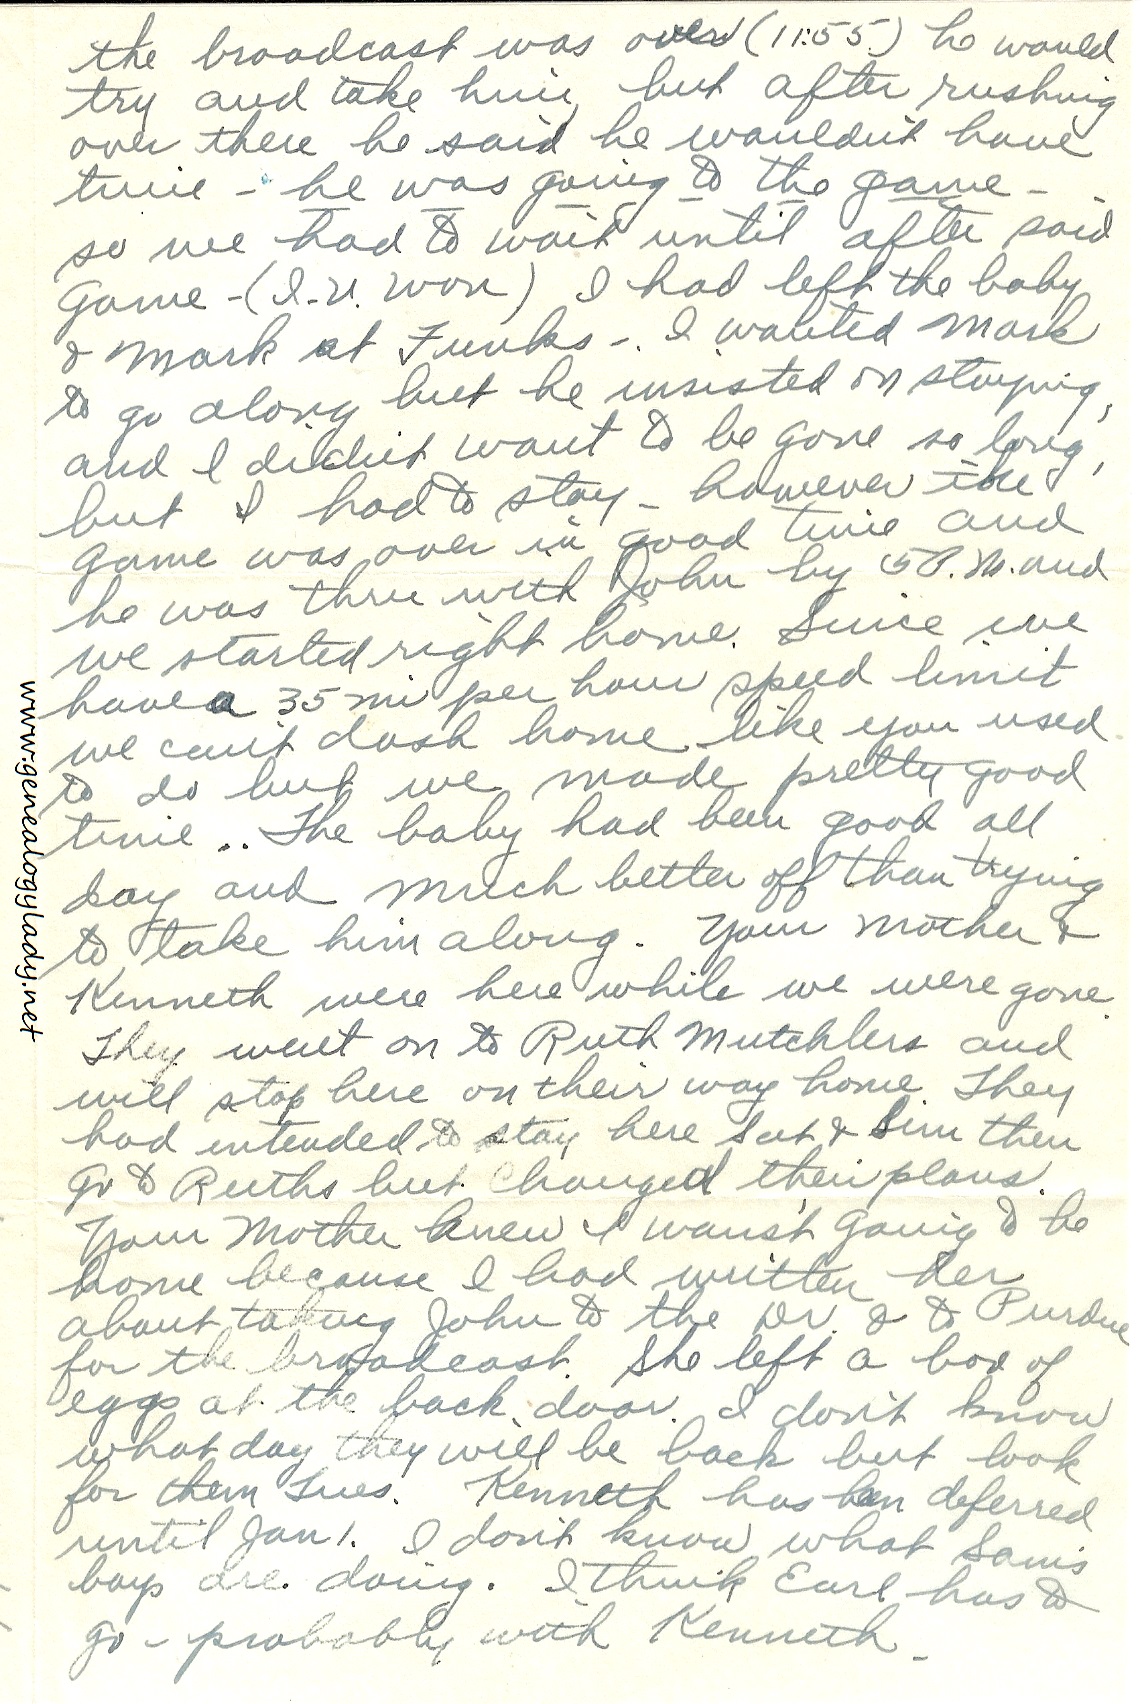 the broadcast was over (11:55) he would
try and take him, but after rushing
over there he said he wouldn't have
time - he was going to the game -
so we had to wait until after said
game - (I.U. won) I had left the baby
& Mark at Funks -. I wanted Mark
to go along but he insisted on staying,
and I didn't want to be gone so long,
but I had to stay - however the
game was over in good time and
he was thru with John by 5 P.M. and
we started right home. Since we
have a 35 mi per hour speed limit
we can't dash home like you used
to do but we made pretty good
time .. The baby had been good all
day and much better off than trying
to take him along. Your Mother &
Kenneth were here while we were gone.
They went on to Ruth Mutchlers and
will stop here on their way home. They
had intended to stay here Sat & Sun then
go to Ruths but changed their plans.
Your Mother knew I wasn't going to be
home because I had written her
about taking John to the Dr. & to Purdue
for the broadcast. She left a box of
eggs at the back door. I don't know
what day they will be back but look
for them Tues. Kenneth has been deferred
until Jan 1. I don't know what Sam's
boys are doing. I think Earl has to
go - probably with Kenneth -
www.genealogylady.net